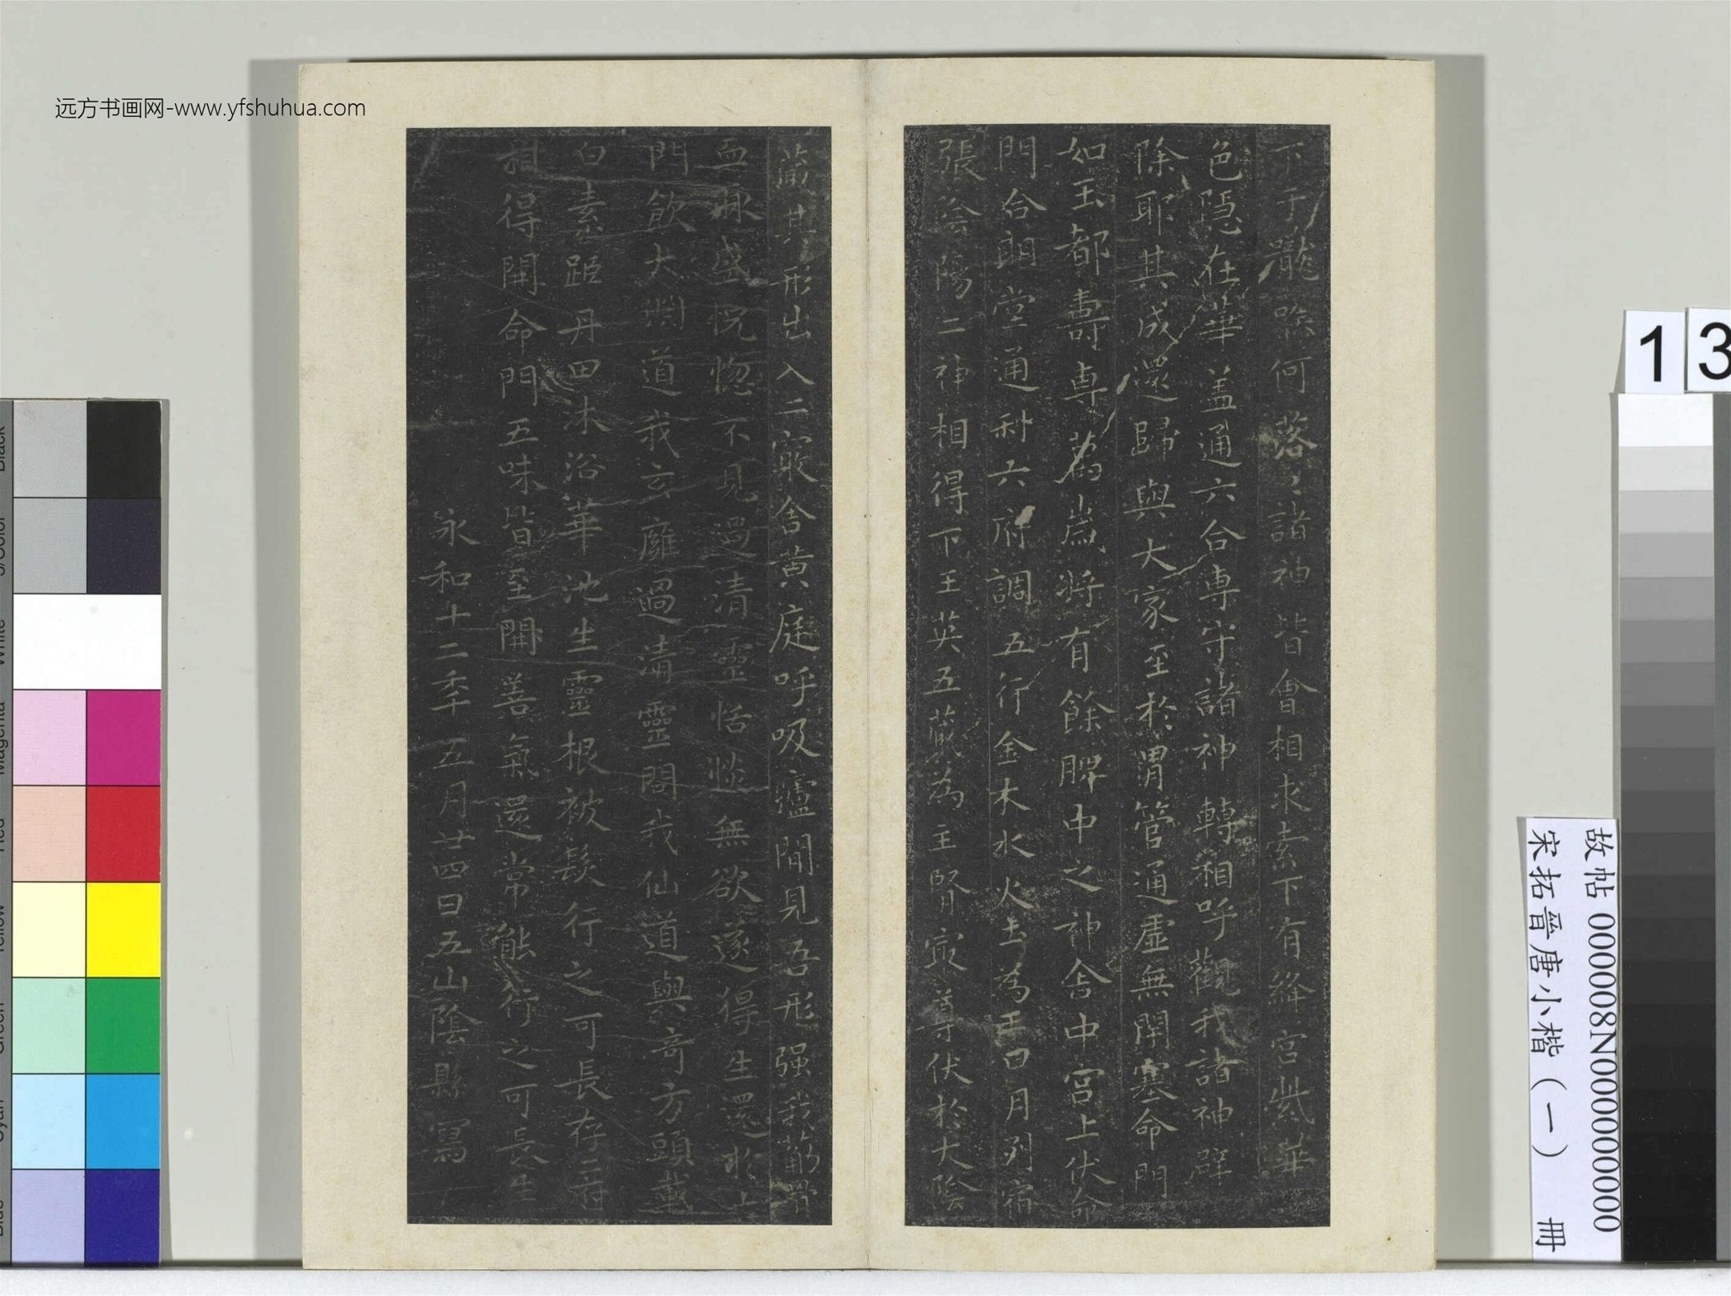 远方书画网-www.yfshuhua.com
下于嚨喉何落々諸神皆會相求索下有絳宮紫華
色隱在華盖通六合專守諸神轉相呼觀我諸神辟
除耶其成還歸與大家至於胃管通虛無閉塞命門
如玉都壽專萬歲將有餘脾中之神舍中宮上伏命
門合明堂通利六府調五行金木水火土為王日月列宿
張陰陽二神相得下玉英五藏為主腎最尊伏於大陰
藏其形出入二竅舍黃庭呼吸廬間見吾形强我筋骨
血脉盛恍惚不見過清靈恬惔無欲遂得生還於七
門飲大淵道我玄廱過清靈問我仙道與奇方頭載
白素距丹田沐浴華池生靈根被髮行之可長存二府
相得開命門五味皆至開善氣還常能行之可長生
永和十二年五月廿四日五山陰縣寫
13
故帖 000008N000000000
宋拓晉唐小楷（一） 冊